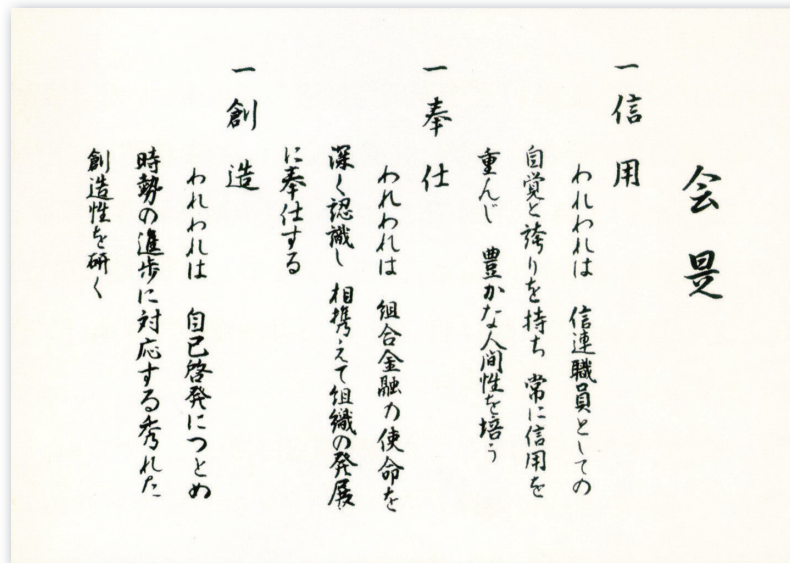 会是
一信用
われわれは 信連職員としての
自覚と誇りを持ち 常に信用を
重んじ 豊かな人間性を培う
一奉仕
われわれは 組合金融の使命を
深く認識し 相携えて組織の発展
に奉仕する
一創造
われわれは 自己啓発につとめ
時勢の進歩に対応する秀れた
創造性を研く